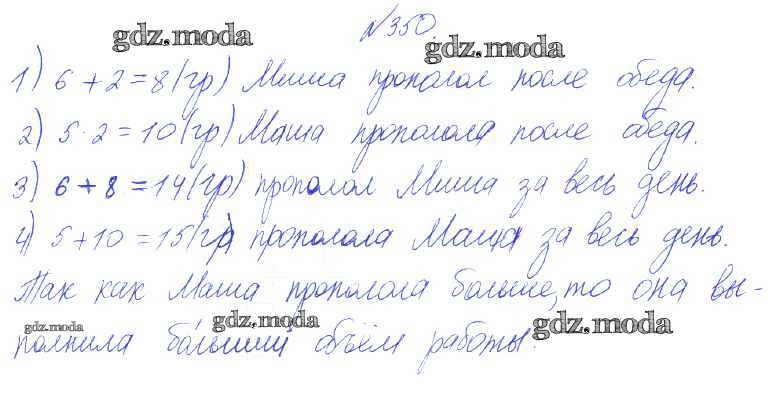 №350.
gdz.moda gdz.moda
1) 6 + 2 = 8 (гр) Миша прополол после обеда.
2) 5 · 2 = 10 (гр) Маша прополола после обеда.
3) 6 + 8 = 14 (гр) прополол Миша за весь день.
4) 5 + 10 = 15 (гр) прополола Маша за весь день.
Так как Маша прополола больше, то она вы-
gdz.moda gdz.moda gdz.moda
полнила бо́льший объём работы.